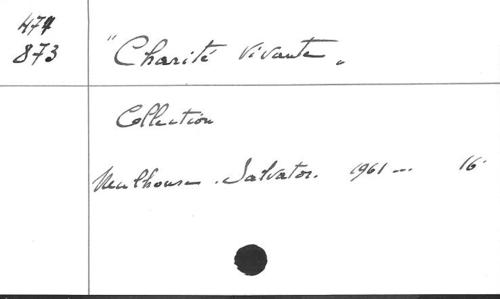 474
873
"Charité Vivante"
Collection
Mulhouse. Salvator. 1961 ... 16°